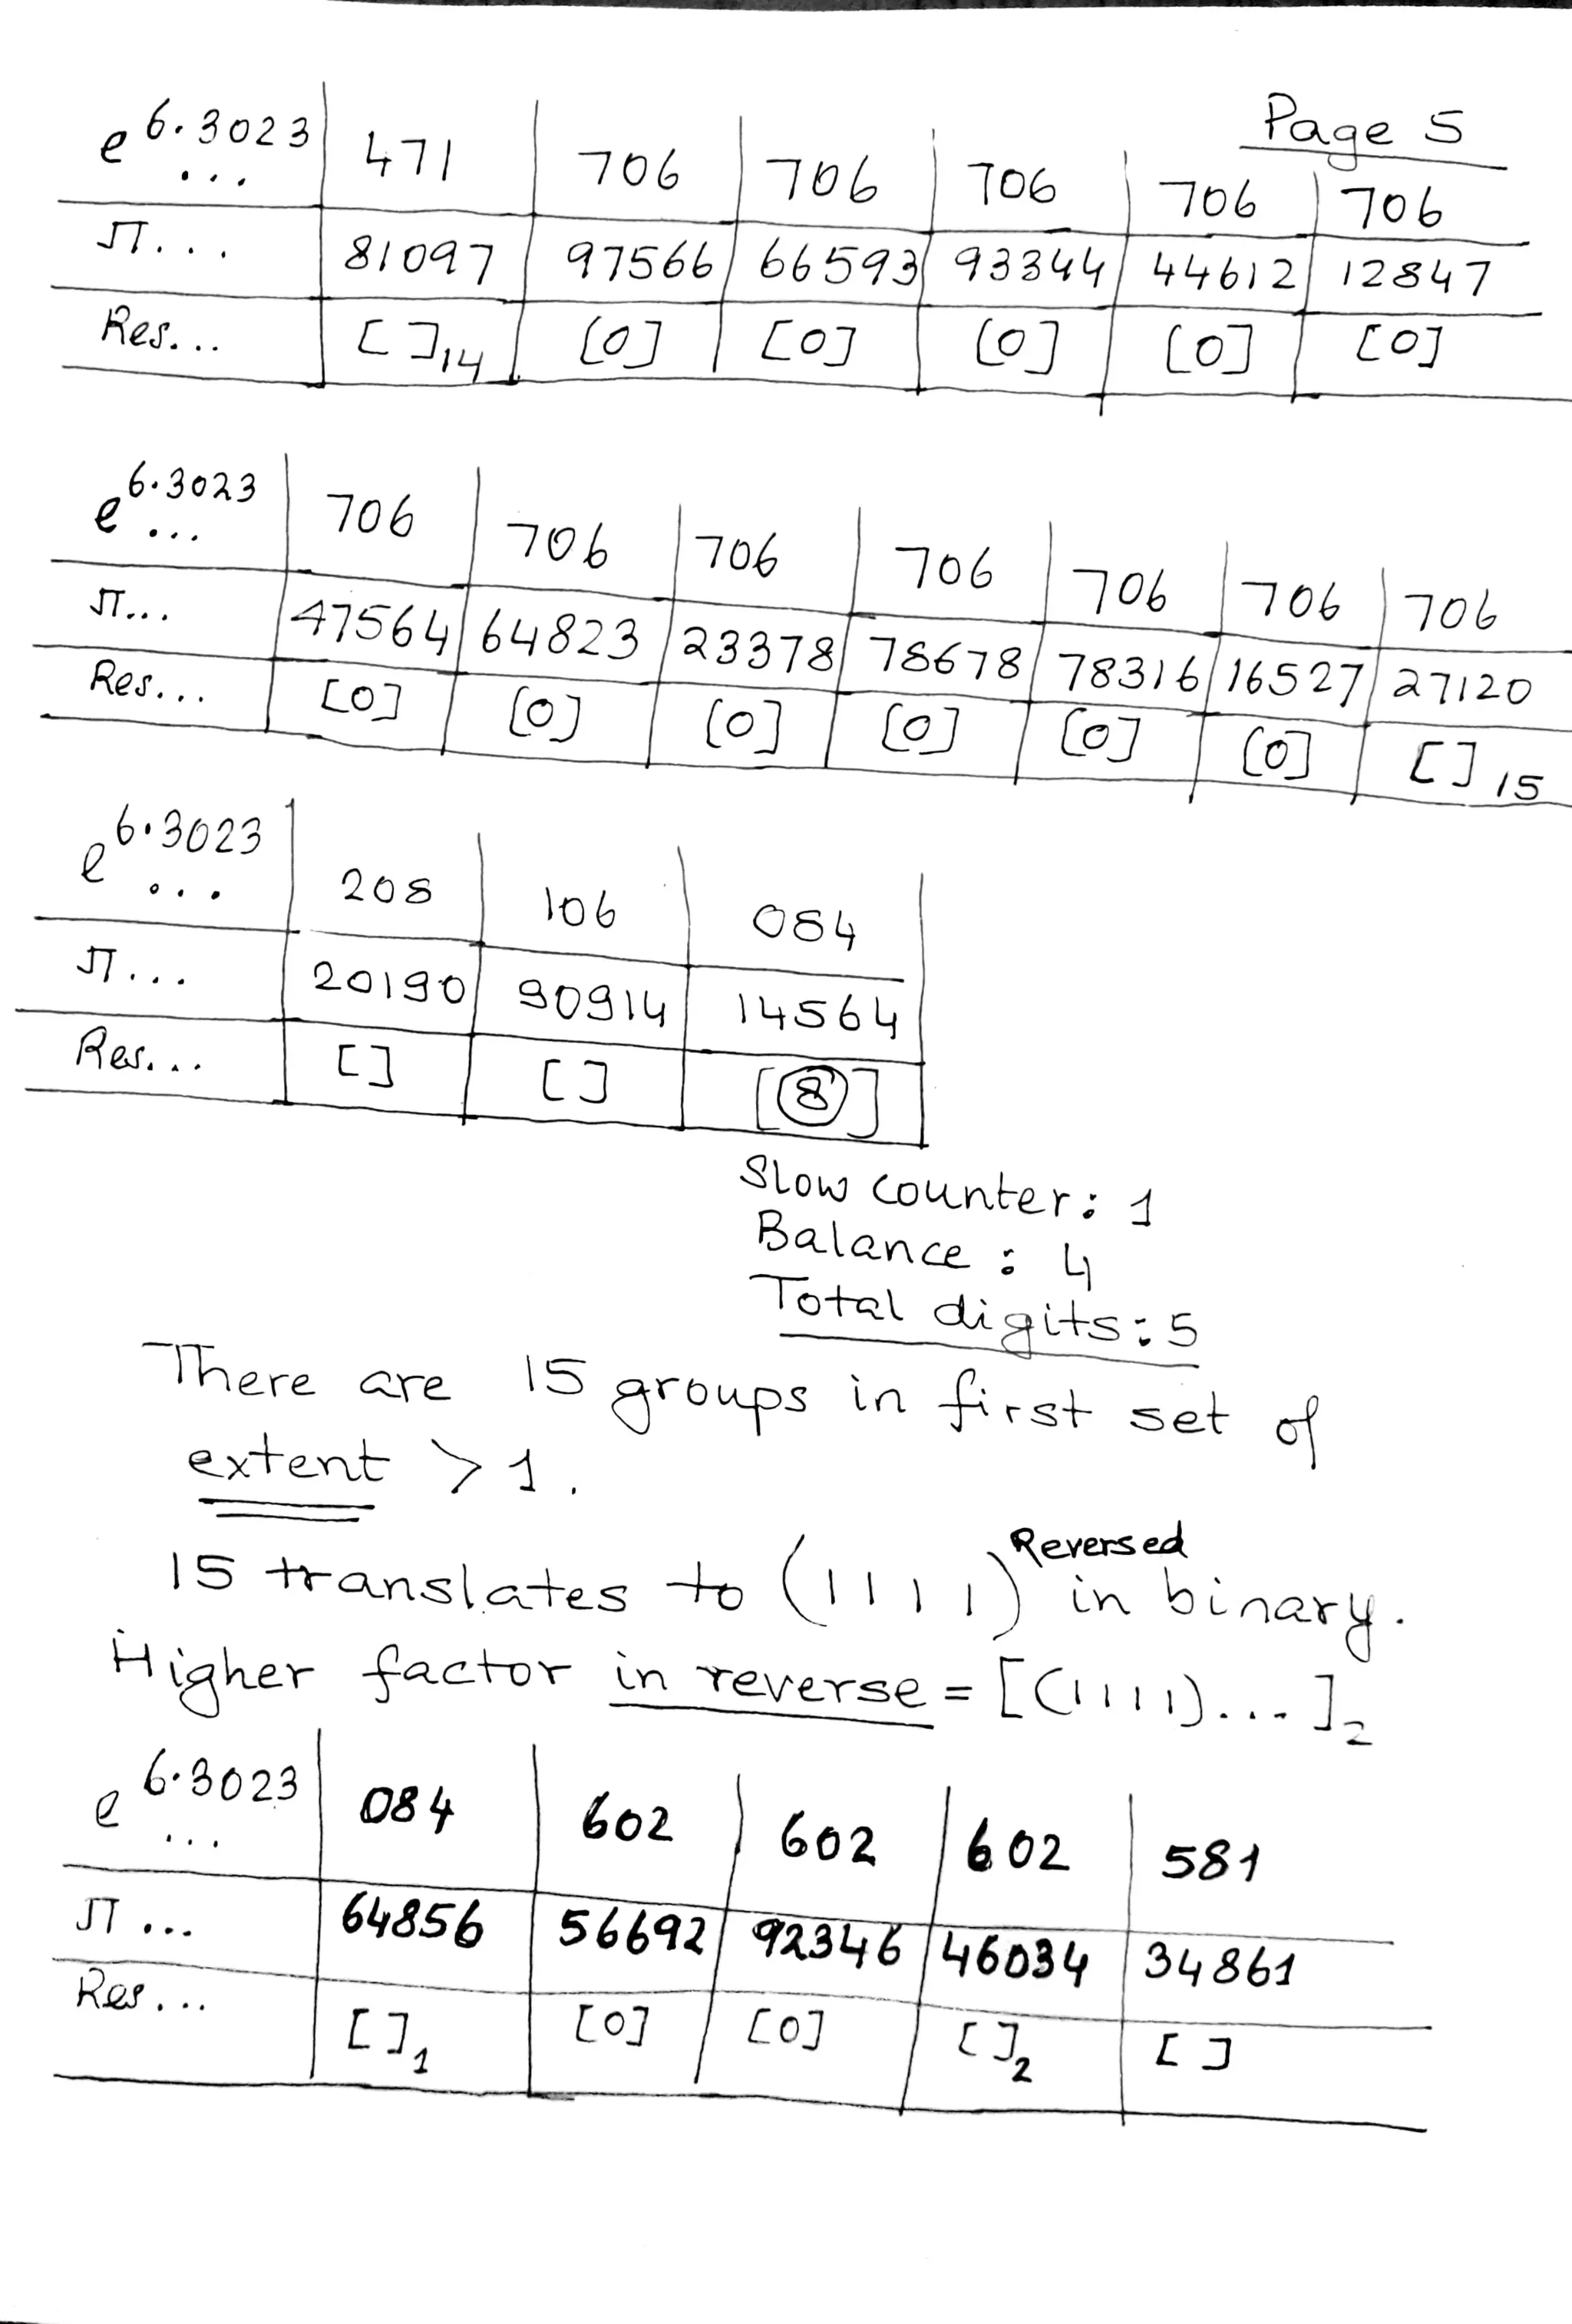 Page 5
e^6.3023 ... 471 706 706 706 706 706
π... 81097 97566 66593 93344 44612 12847
Res... [ ]14 [0] [0] [0] [0] [0]
e^6.3023 ... 706 706 706 706 706 706 706
π... 47564 64823 23378 78678 78316 16527 27120
Res... [0] [0] [0] [0] [0] [0] [ ]15
e^6.3023 ... 208 106 084
π... 20190 90914 14564
Res... [ ] [ ] [8]
Slow counter: 1
Balance: 4
Total digits: 5
There are 15 groups in first set of
extent > 1.
15 translates to (1111)^Reversed in binary.
Higher factor in reverse = [(1111)...]2
e^6.3023 ... 084 602 602 602 581
π... 64856 56692 92346 46034 34861
Res... [ ]1 [0] [0] [ ]2 [ ]